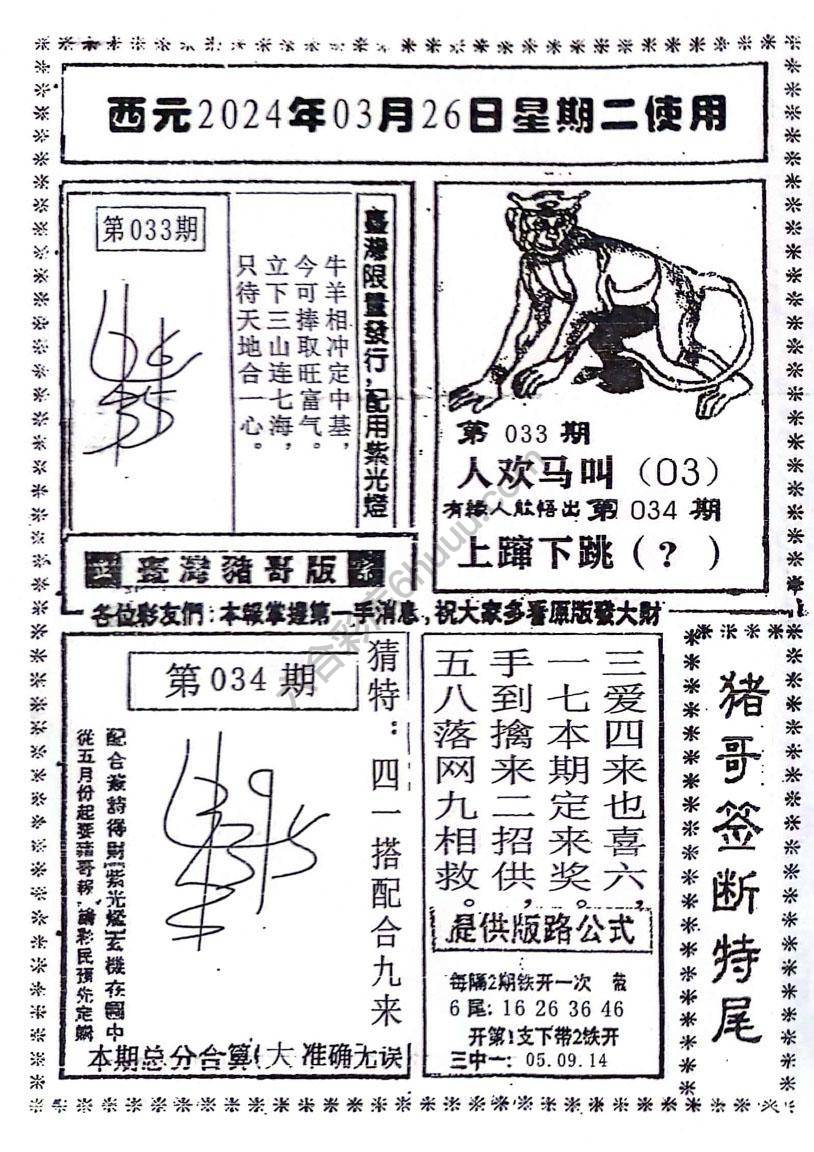 西元2024年03月26日星期二使用
第033期
牛羊相冲定中基，
今可捧取旺富气。
立下三山连七海，
只待天地合一心。
臺灣限量發行，配用紫光燈
第 033 期
人欢马叫（03）
有緣人能悟出第 034 期
上蹿下跳（？）
臺灣豬哥版
各位彩友們：本報掌握第一手消息，祝大家多看原版發大財
第034期
猜特：四一搭配合九来
配合簽詩得財紫光燈玄機在圖中
從五月份起要豬哥報，請彩民預先定購
本期总分合算（大 准确无误
三爱四来也喜六，
一七本期定来奖。
手到擒来二招供，
五八落网九相救。
提供版路公式
每隔2期铁开一次
6尾：16 26 36 46
开第1支下带2铁开
三中一：05.09.14
猪哥签断特尾
六合彩库6huuu.com